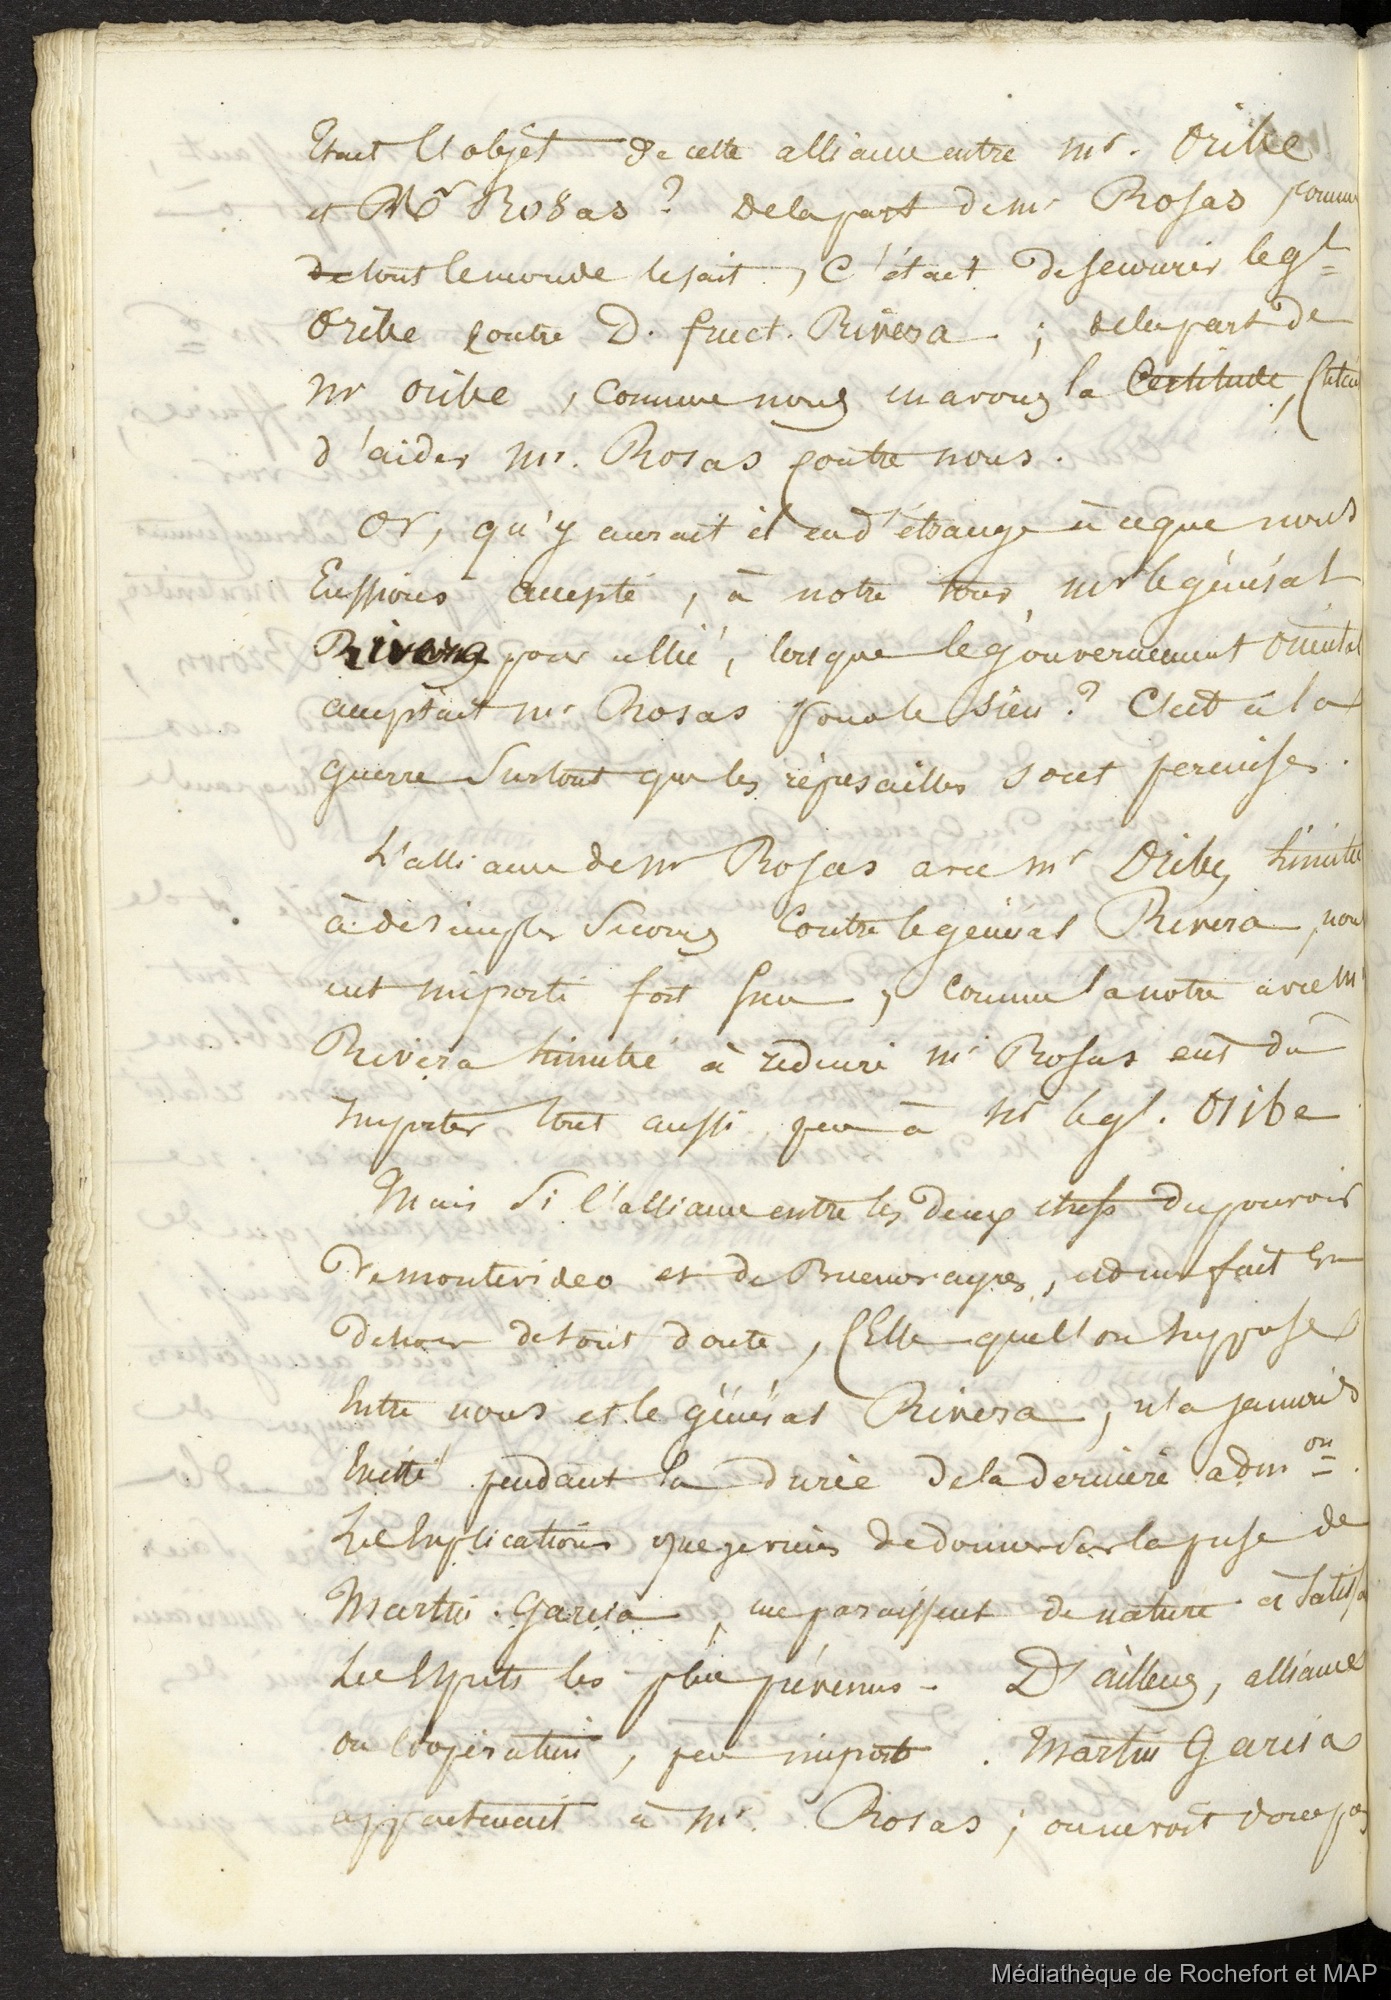 Etait l'objet de cette alliance entre mr. Oribe
et Mr Rosas ? de la part de mr Rosas comme
de tout le monde le sait, C'était de secourir le gl
Oribe contre D. fruct. Rivera ; de la part de
mr oribe, comme nous en avons la Certitude, C'était
d'aider mr. Rosas contre nous.
Or, qu'y aurait il eu d'étrange à ce que nous
Eussions accepté, à notre tour, mr le général
Rivera pour allié, lorsque le gouvernement Oriental
acceptait mr Rosas pour le sien ? C'est à la
guerre Surtout que les réprésailles sont permises.
L'alliance de mr Rosas avec mr Oribe, limitée
à de simples Secours Contre le général Rivera, nous
eut importé fort peu, comme la notre avec mr
Rivera limitée à réduire mr Rosas eut dû
importer tout aussi peu à mr le gl. Oribe
Mais Si l'alliance entre les deux chefs du pouvoir
De montevideo et de Buenos ayres, est un fait en
dehors de tout doute, Celle que l'on suppose
Entre nous et le général Rivera, n'a jamais
Existé pendant la durée de la dernière admon.
Les Explications que je viens de donner sur la prise de
Martin Garcia, me paraissent de nature à Satisfa
Les Esprits les plus prévenus. D'ailleurs, alliance
ou Coopération, peu importe. Martin Garcia
appartenait à mr. Rosas ; on ne voit donc pas
Médiathèque de Rochefort et MAP